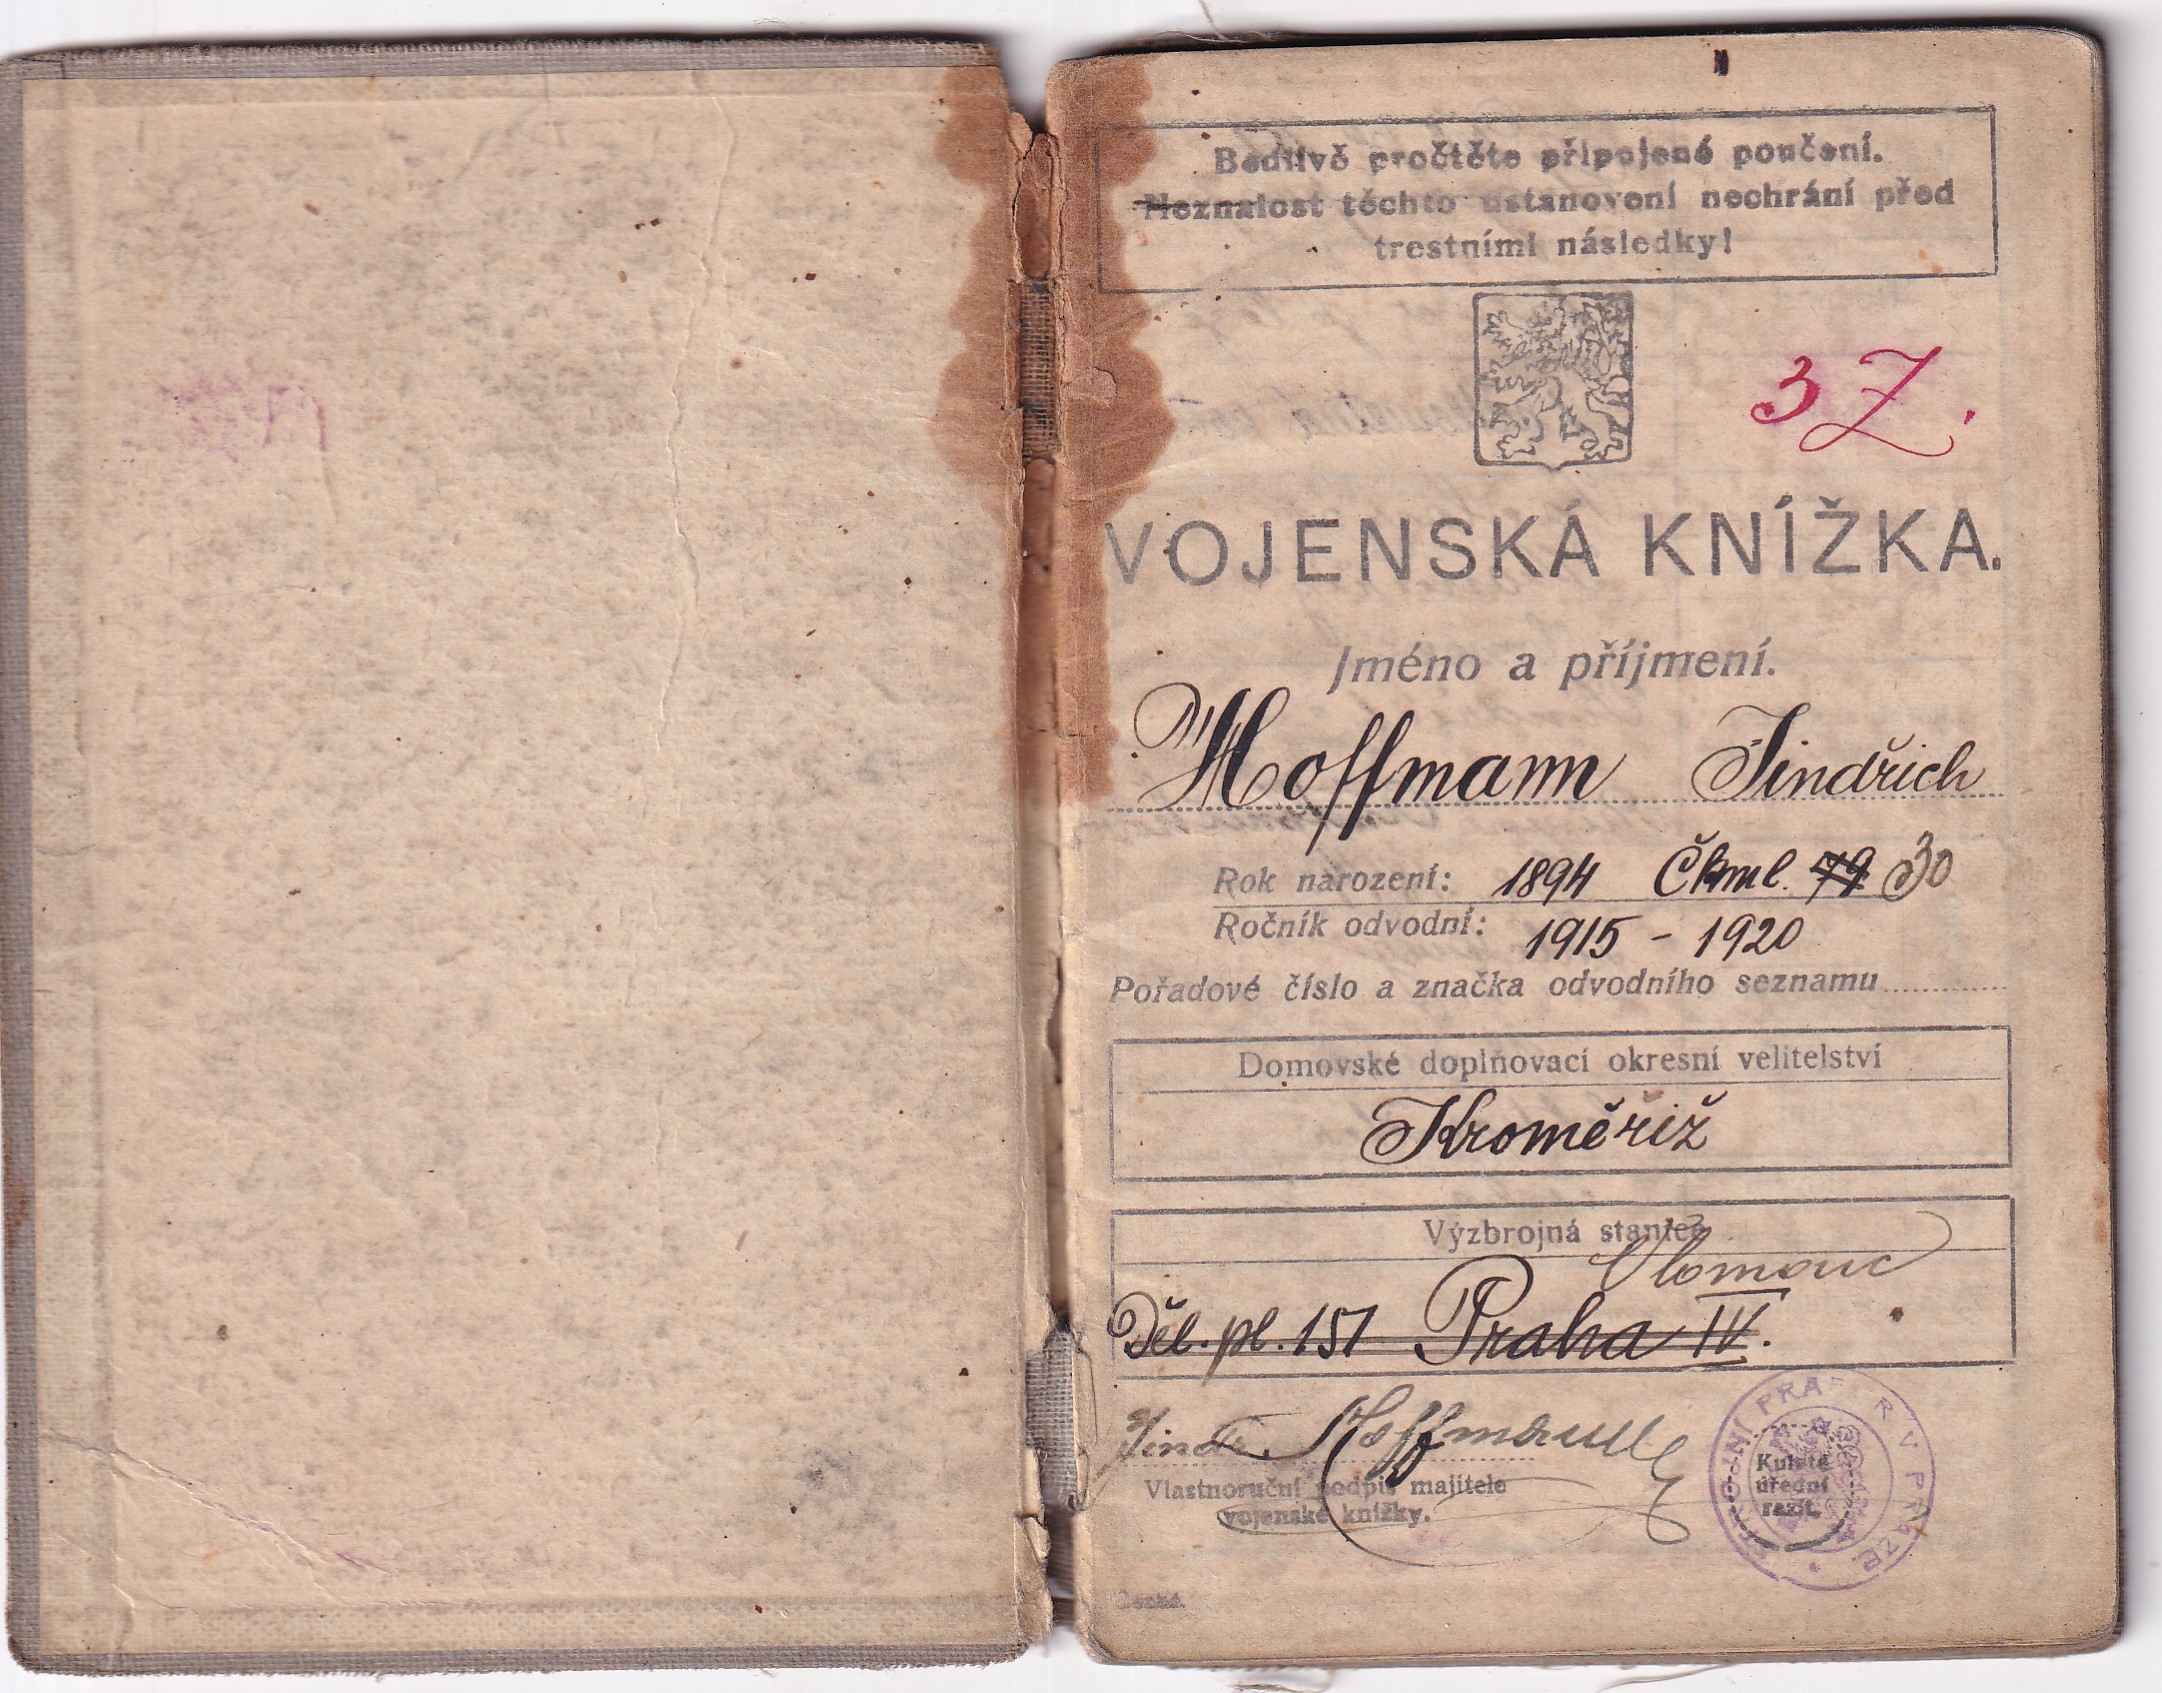 Bedlivě pročtěte připojené poučení.
Neznalost těchto ustanovení nechrání před
trestními následky!
3 Z.
VOJENSKÁ KNÍŽKA.
Jméno a příjmení.
Hoffmann Jindřich
Rok narození: 1894 Čkml. 79 30
Ročník odvodní: 1915 - 1920
Pořadové číslo a značka odvodního seznamu
Domovské doplňovací okresní velitelství
Kroměřiž
Výzbrojná stanice
Olomouc
Děl. pl. 151 Praha IV.
Jindř. Hoffmann
Vlastnoruční podpis majitele
vojenské knížky.
Kulaté
úřední
razít.
PRAPOR V PRAZE
Česká.